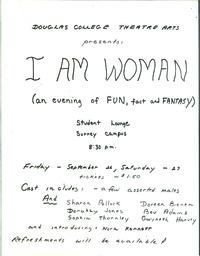 DOUGLAS COLLEGE THEATRE ARTS
presents:
I AM WOMAN
(an evening of FUN, fact and FANTASY)
Student Lounge
Surrey campus
8:30 p.m.
Friday - September 26, Saturday - 27
tickets - $1.50
Cast includes: - a few assorted males
And Sharon Pollock Doreen
Dorothy Jones Bev Adams
Sophia Thornley Gwyneth Harvey
and introducing: Nora
Refreshments will be available!